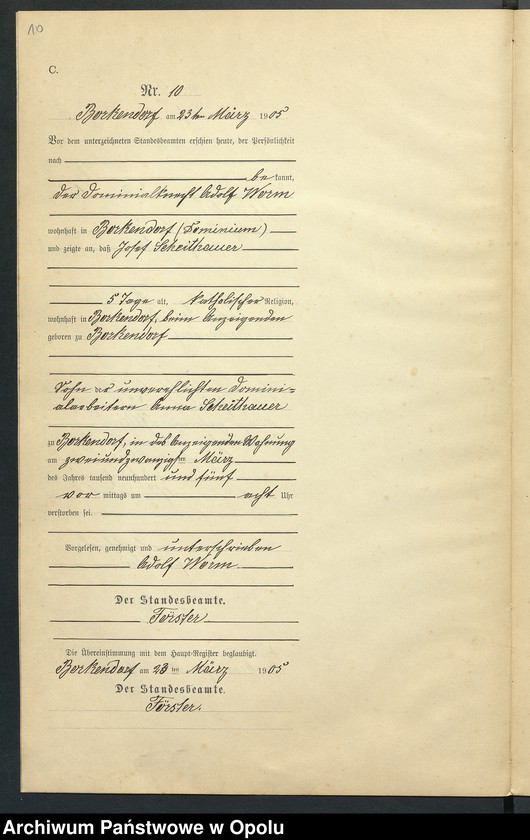 10
C.
Nr. 10
Borkendorf am 23ten März 1905
Vor dem unterzeichneten Standesbeamten erschien heute, der Persönlichkeit
nach
bekannt,
der Dominialknecht Adolf Worm
wohnhaft in Borkendorf (Dominium)
und zeigte an, daß Josef Scheithauer
5 Tage alt, katholischer Religion,
wohnhaft in Borkendorf, beim Anzeigenden
geboren zu Borkendorf
Sohn der unverehlichten Domini=
alarbeitern Anna Scheithauer
zu Borkendorf, in des Anzeigenden Wohnung
am zweiundzwanzigsten März
des Jahres tausend neunhundert und fünf
vor mittags um acht Uhr
verstorben sei.
Vorgelesen, genehmigt und unterschrieben
Adolf Worm
Der Standesbeamte.
Förster
Die Übereinstimmung mit dem Haupt-Register beglaubigt.
Borkendorf am 23 ten März 1905
Der Standesbeamte.
Förster.
Archiwum Państwowe w Opolu